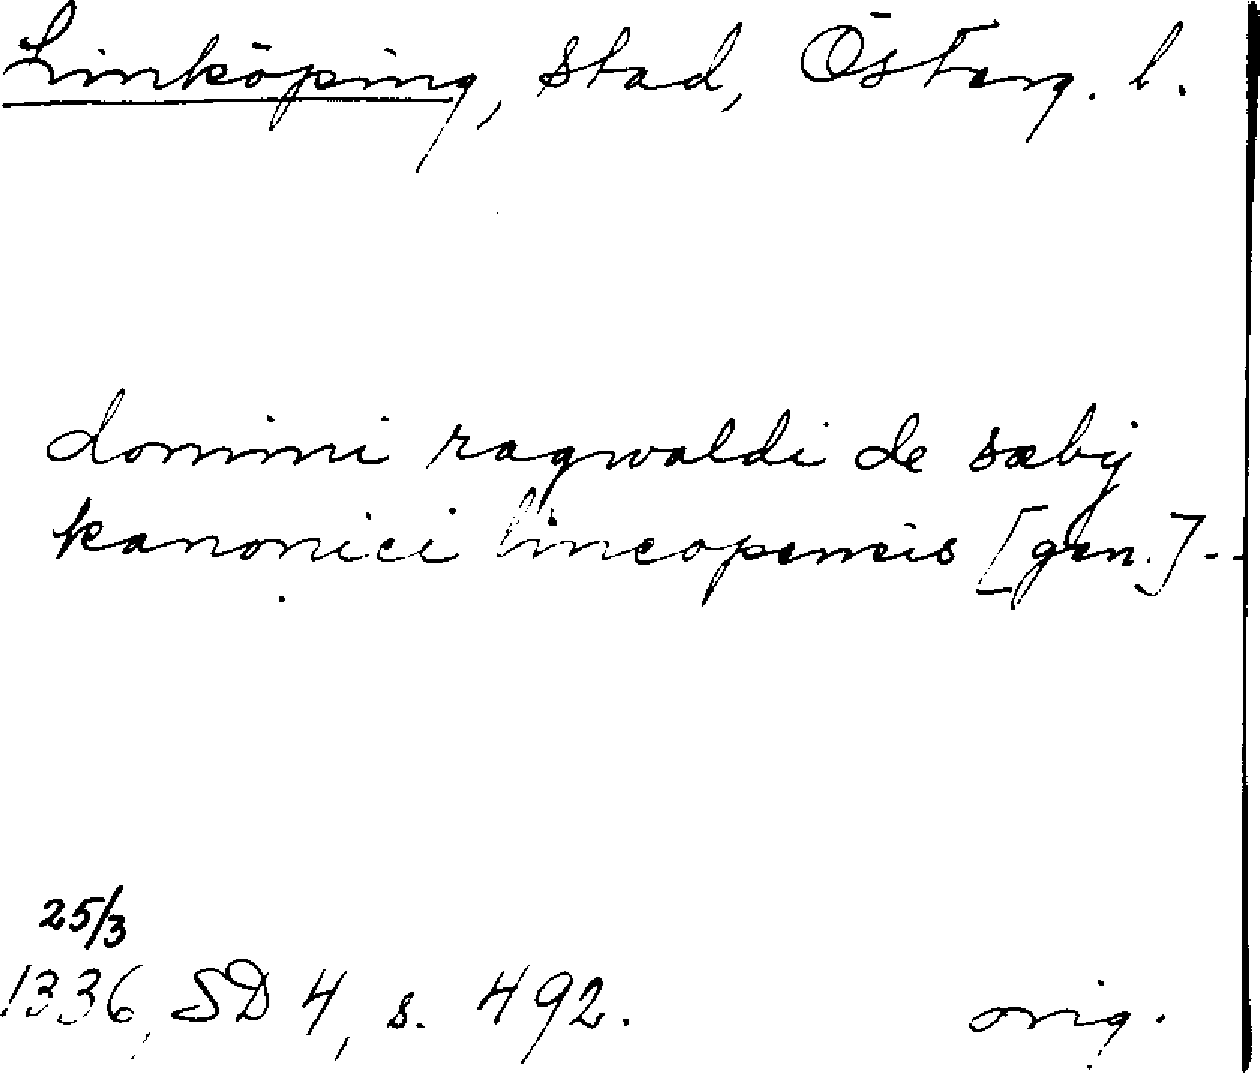 Linköping, stad, Österg. l.
domini ragwaldi de sæby
kanonici lincopensis [gen.] - -
25/3
1336, SD 4, s. 492. orig.